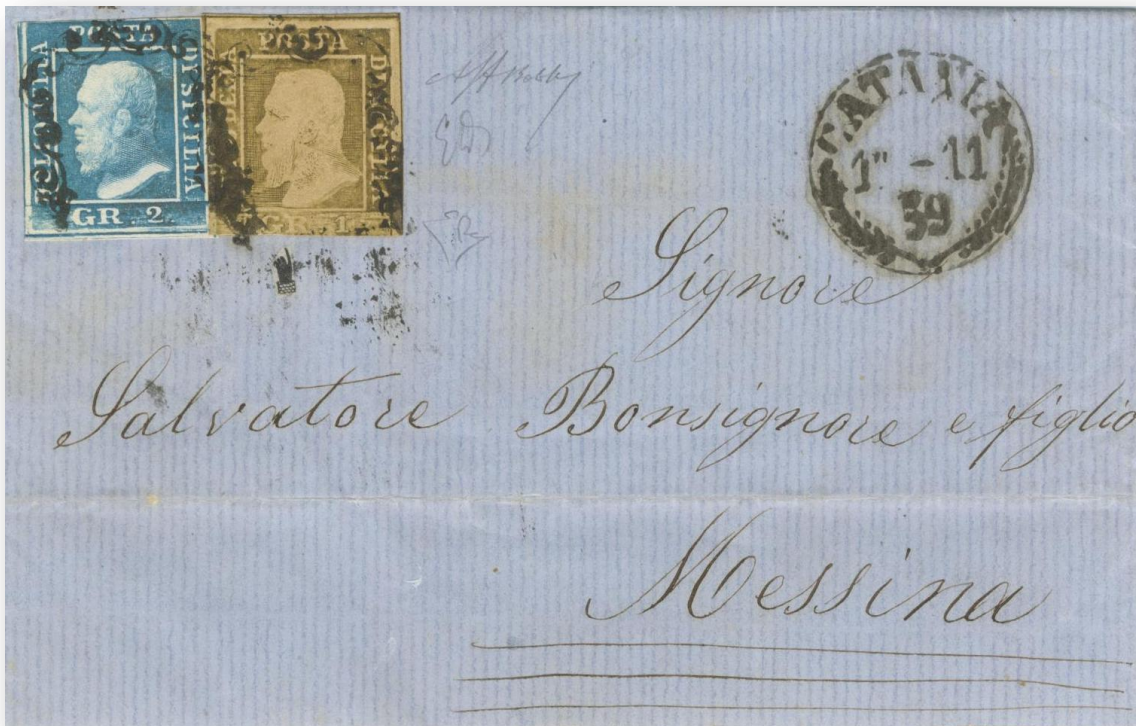 BOLLO DELLA POSTA DI SICILIA
GR. 2.
BOLLO DELLA POSTA DI SICILIA
GR. 1
CATANIA
1º - 11
59
Signore
Salvatore Bonsignore e figlio
Messina